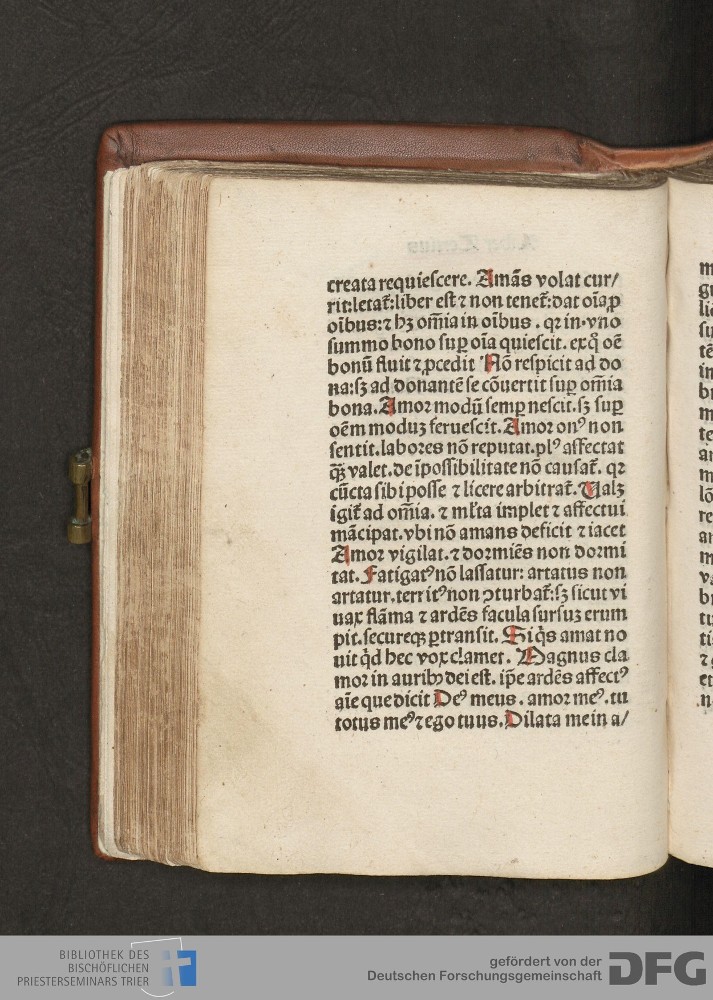 creata requiescere. Amãs volat cur/
rit: letat᷑: liber est ⁊ non tenet᷑: dat oĩa ꝓ
oĩbus: ⁊ hꝫ om̃ia in oĩbus. qꝛ in vno
summo bono suꝑ oĩa quiescit. ex q̊ oẽ
bonũ fluit ⁊ ꝓcedit Nõ respicit ad do
na: sꝫ ad donantẽ se cõuertit suꝑ om̃ia
bona. Amor modũ semꝑ nescit. sꝫ suꝑ
oẽm moduꝫ feruescit. Amor onꝰ non
sentit. labores nõ reputat. plꝰ affectat
qꝫ̃ valet. de ĩpossibilitate nõ causat᷑. qꝛ
cũcta sibi posse ⁊ licere arbitrat᷑. Ualꝫ
igit᷑ ad om̃ia. ⁊ ml̃ta implet ⁊ affectui
mãcipat. vbi nõ amans deficit ⁊ iacet
Amor vigilat. ⁊ dormiẽs non dormi
tat. Fatigatꝰ nõ lassatur: artatus non
artatur. territꝰ non ↄturbat᷑: sꝫ sicut vi
uax flãma ⁊ ardẽs facula sursuꝫ erum
pit. secureqꝫ ꝑtransit. Si q̇s amat no
uit q̇d hec vox clamet. Magnus cla
mor in auribꝰ dei est. ip̃e ardẽs affectꝰ
aĩe que dicit Deꝰ meus. amor meꝰ. tu
totus meꝰ ⁊ ego tuus. Dilata me in a/
BIBLIOTHEK DES
BISCHÖFLICHEN
PRIESTERSEMINARS TRIER
gefördert von der
Deutschen Forschungsgemeinschaft
DFG